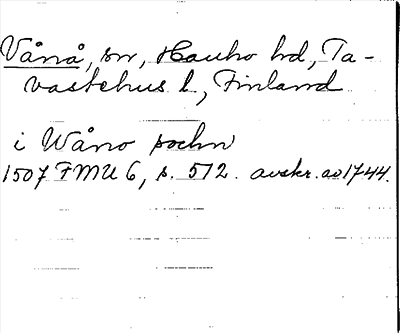 Vånå, sn, Hauho hd, Ta-
vastehus l, Finland
i Wåno sochn
1507 FMU 6, s. 512. avskr. av 1744.